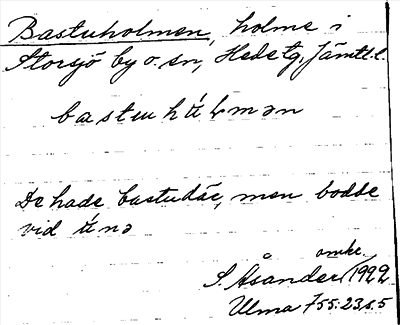 Bastuholmen, holme i
Storsjö by o. sn, Hede tg, Jämtl. l.
bastuhúɫmən
De hade bastu där, men bodde
vid ú nə
omkr.
S. Åsander 1922
Ulma 755:23, s. 5